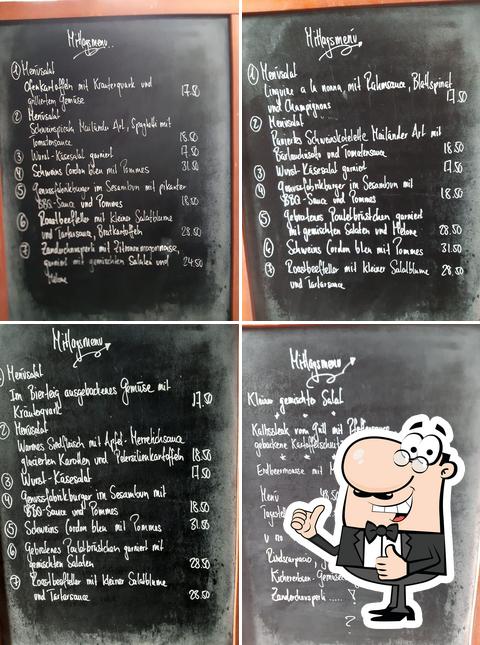 Mittagsmenu
① Menüsalat
Ofenkartoffeln mit Kräuterquark und
grilliertem Gemüse 17.50
② Menüsalat
Schweinspiccata Mailänder Art, Spaghetti mit
Tomatensauce 18.50
③ Wurst-Käsesalat garniert 17.50
④ Schweins Cordon bleu mit Pommes 31.50
⑤ Genussfabrikburger im Sesambun mit pikanter
BBQ-Sauce und Pommes 18.50
⑥ Roastbeefteller mit kleiner Salatblume
und Tartarsauce, Bratkartoffeln 28.50
⑦ Zanderchnusperli mit Zitronenmayonnaise,
garniert mit gemischten Salaten und 24.50
Melone
Mittagsmenu
① Menüsalat
Linguine a la nonna, mit Rahmsauce, Blattspinat
und Champignons 17.50
② Menüsalat
Paniertes Schweinskotelette Mailänder Art mit
Bärlauchrisotto und Tomatensauce 18.50
③ Wurst-Käsesalat garniert 17.50
④ Genussfabrikburger im Sesambun mit
BBQ-Sauce und Pommes 18.50
⑤ Gebratenes Pouletbrüstchen garniert
mit gemischten Salaten und Melone 28.50
⑥ Schweins Cordon bleu mit Pommes 31.50
⑦ Roastbeefteller mit kleiner Salatblume 28.50
und Tartarsauce
Mittagsmenu
① Menüsalat
Im Bierteig ausgebackenes Gemüse mit
Kräuterquark 17.50
② Menüsalat
Warmes Siedfleisch mit Apfel-Meerettichsauce
glacierten Karotten und Petersilienkartoffeln 18.50
③ Wurst-Käsesalat 17.50
④ Genussfabrikburger im Sesambun mit
BBQ-Sauce und Pommes 18.50
⑤ Schweins Cordon bleu mit Pommes 31.50
⑥ Gebratenes Pouletbrüstchen garniert mit
gemischten Salaten 28.50
⑦ Roastbeefteller mit kleiner Salatblume
und Tartarsauce 28.50
Mittagsmenu
Kleiner gemischter Salat
Kalbssteak vom Grill mit Pfeffersauce
gebackene
Erdbeermousse mit
Menü 48.50
Rindscarpaccio,
Zanderchnusperli ..... ?
?